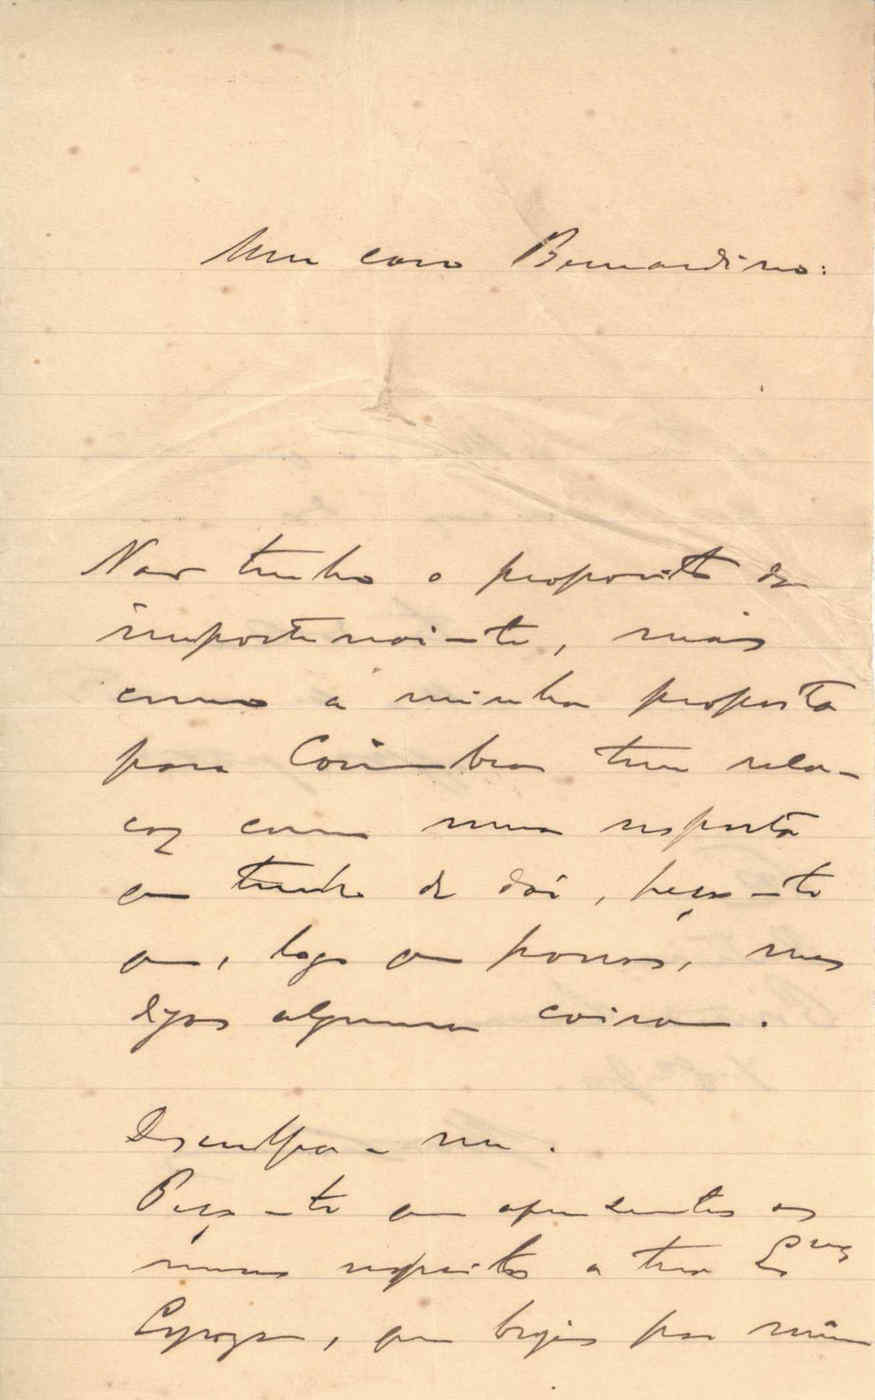 Meu caro Bernardino:
Nao tenho o proposito de
importunar-te, mas
como a minha proposta
para Coimbra tem rela-
çaõ com uma resposta
que tenho de dar, peço-te
que, logo que possas, me
digas alguma coisa.
Desculpa-me.
Peço-te que apresentes os
meus respeitos a tua Ex.ma
Esposa, que beijes por mim